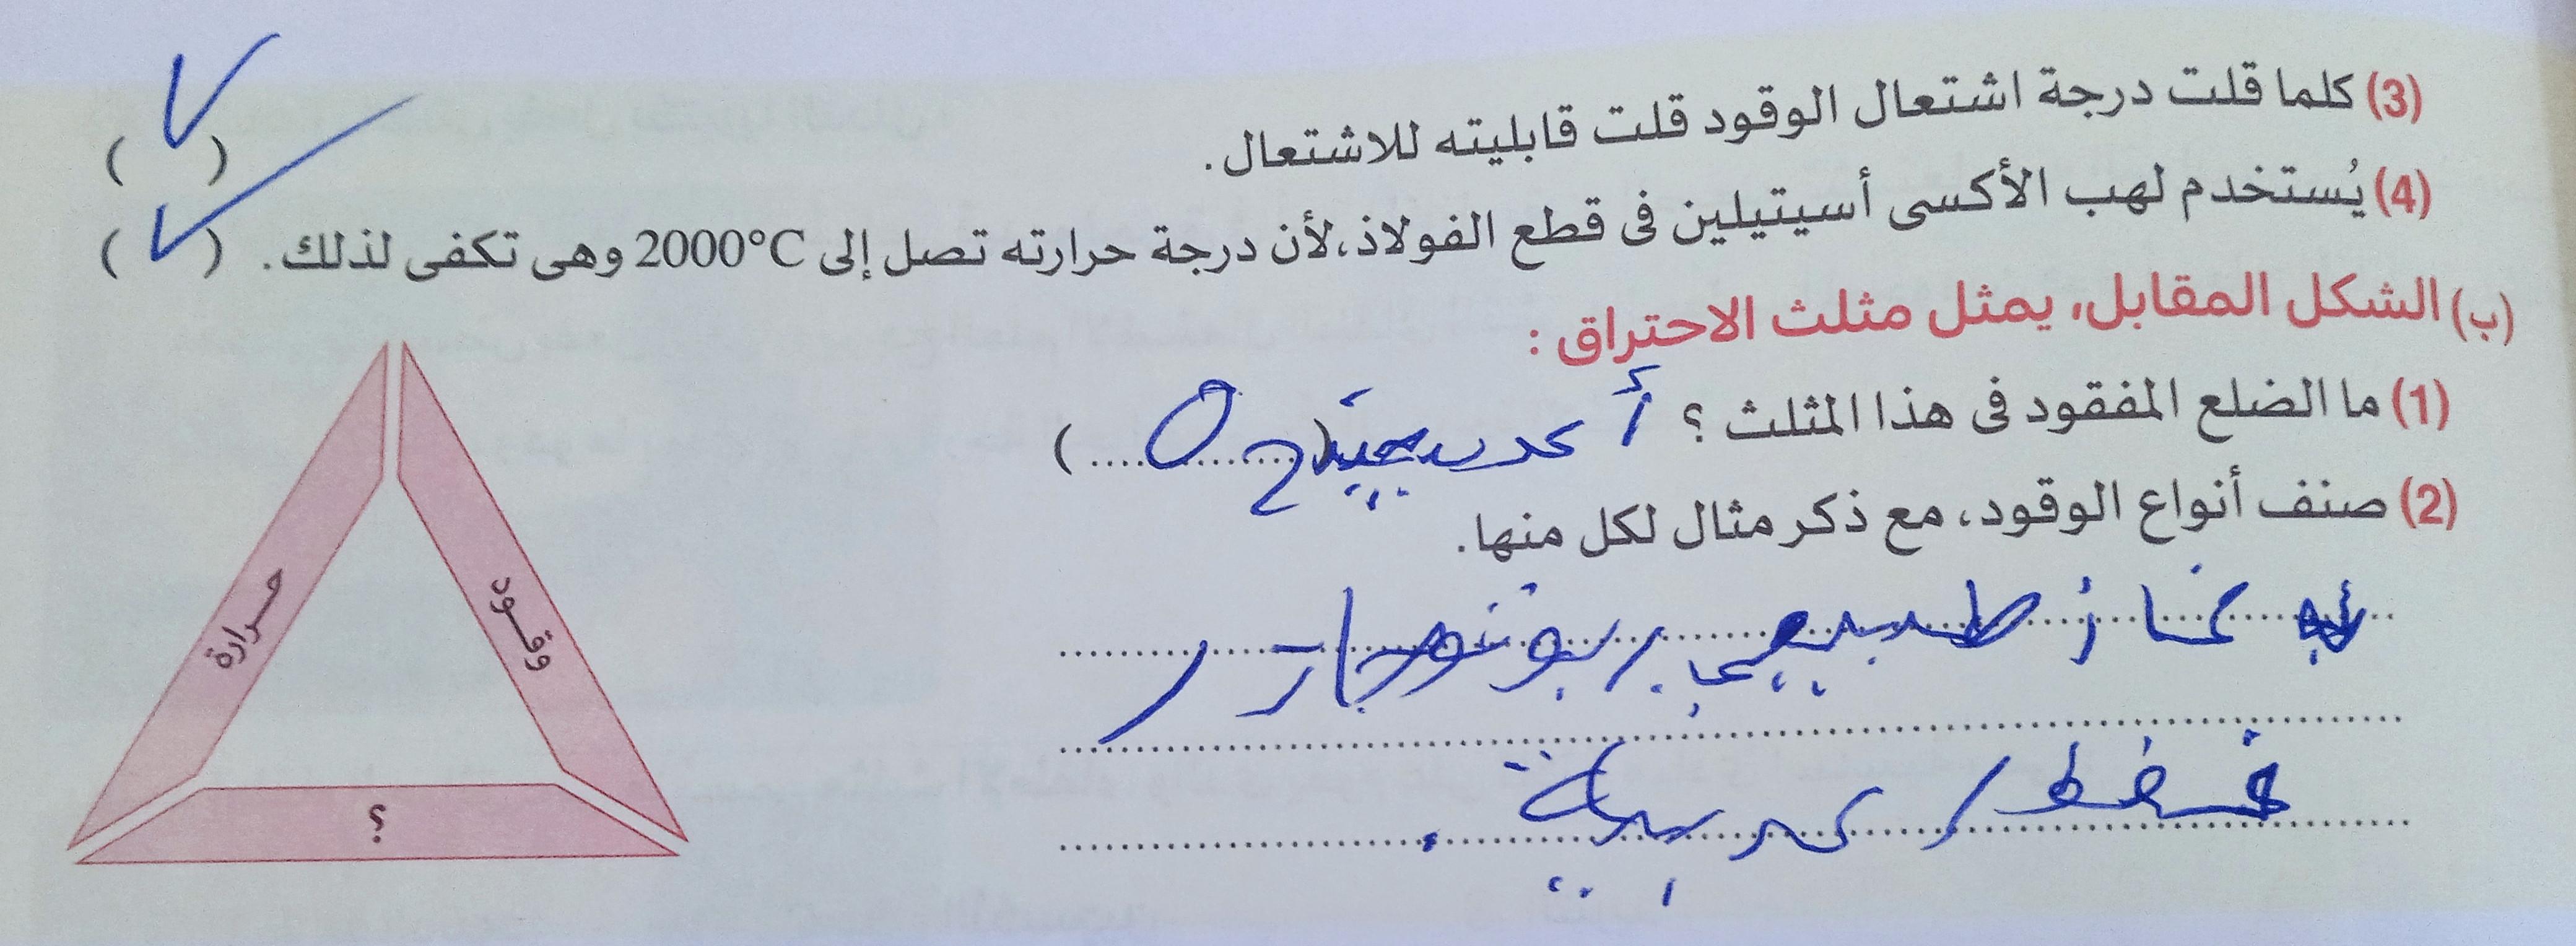 (3) كلما قلت درجة اشتعال الوقود قلت قابليته للاشتعال. ( ✓ )
(4) يُستخدم لهب الأكسى أسيتيلين فى قطع الفولاذ، لأن درجة حرارته تصل إلى 2000°C وهى تكفى لذلك. ( ✓ )
(ب) الشكل المقابل، يمثل مثلث الاحتراق :
(1) ما الضلع المفقود فى هذا المثلث ؟ (..............) أكسجين O2
(2) صنف أنواع الوقود، مع ذكر مثال لكل منها.
غاز طبيعي /
/
حرارة
وقود
؟